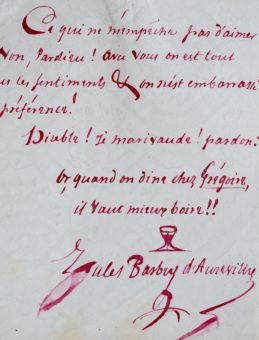 Ce qui ne m'empêche pas d'aimer
Non, Pardieu! avec vous on est tout
les sentiments & on n'est embarrassé
préférence!
Diable! Je marivaude! pardon!
Or, quand on dine chez Grégoire,
il vaut mieux boire!!
Jules Barbey d'Aurevilly